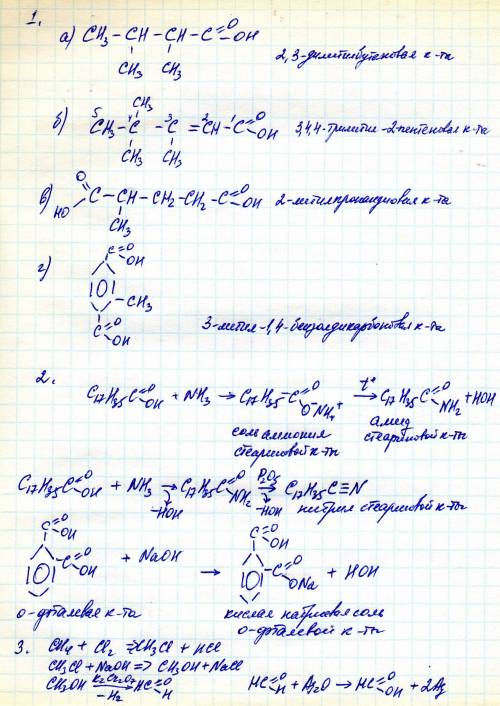 1.
а) CH3 – CH – CH – C=O OH
CH3 CH3
2,3-диметилбутановая к-та
CH3
б) 5 CH3 – 4 C – 3 C = 2 CH – 1 C=O OH 3,4,4-триметил-2-пентеновая к-та
CH3 CH3
в) O HO C – CH – CH2 – CH2 – C=O OH 2-метилпропандиовая к-та
CH3
г) C=O OH
CH3
C=O OH
3-метил-1,4-бензолдикарбоновая к-та
2. C17H35C=O OH + NH3 → C17H35 – C=O O⁻NH4⁺ →t° C17H35C=O NH2 + HOH
соль аммония стеариновой к-ты
амид стеариновой к-ты
C17H35C=O OH + NH3 → -HOH C17H35C=O NH2 P2O5 → -HOH C17H35C≡N
нитрил стеариновой к-ты
C=O OH C=O OH + NaOH → C=O OH C=O ONa + HOH
о-фталевая к-та
кислая натриевая соль о-фталевой к-ты
3. CH4 + Cl2 → CH3Cl + HCl
CH3Cl + NaOH => CH3OH + NaCl
CH3OH K2Cr2O7 → -H2 HC=O H HC=O H + Ag2O → HC=O OH + 2Ag